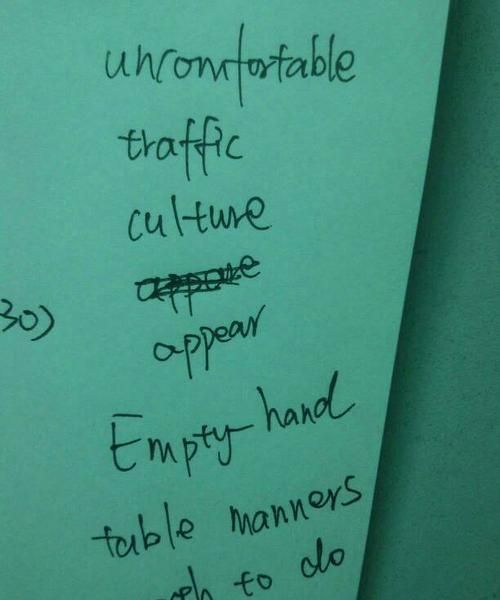 uncomfortable
traffic
culture
30)
appear
Empty-hand
table manners
to do